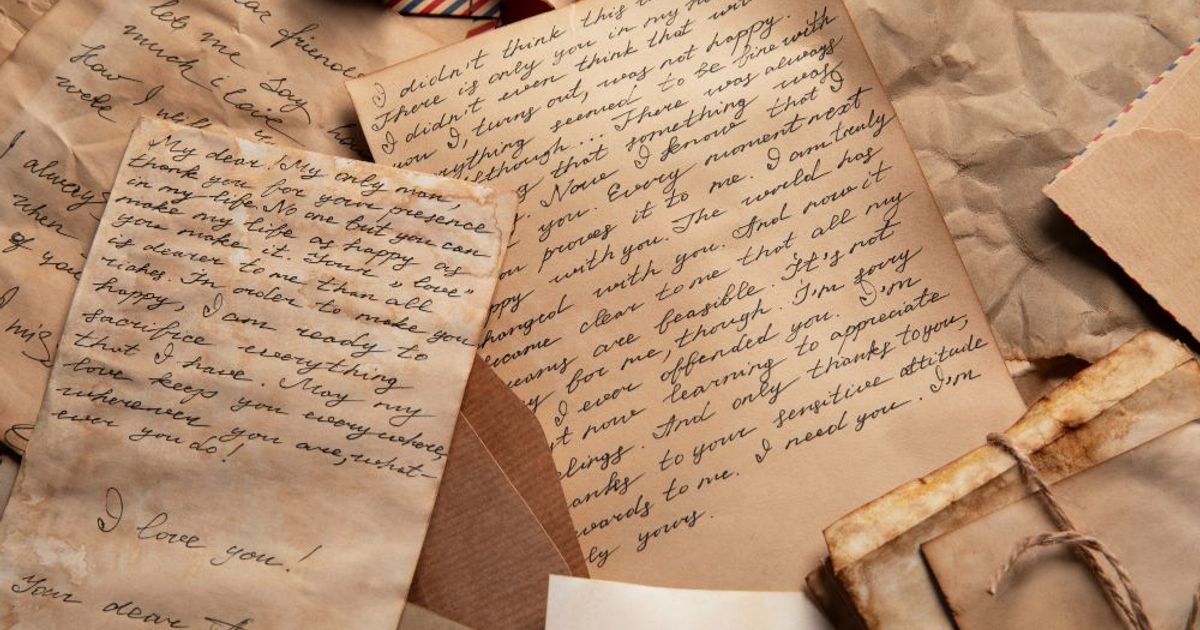 dear friend
let me say
much i love
How I will
were
I always
when
of you
I miss
My dear! My only man,
thank you for your presence
in my life. No one but you can
make my life as happy as
you make it. Your "love"
is dearer to me than all
riches. In order to make you
happy, I am ready to
sacrifice everything
that I have. May my
love keeps you everywhere,
wherever you are, what-
ever you do!
I love you!
Your dear
I didn't think this
There is only you in my
I didn't even think that
you I, turns out, was not happy.
everything seemed to be fine with
although... There was always
that something was
. Now I know that I
you. Every moment next
you proves it to me. I am truly
happy with you. The world has
changed with you. And now it
became clear to me that all my
dreams are feasible. It's not
for me, though. I'm sorry
I ever offended you. I'm
just now learning to appreciate
feelings. And only thanks to you,
thanks to your sensitive attitude
towards to me. I need you. I'm
ly yours.